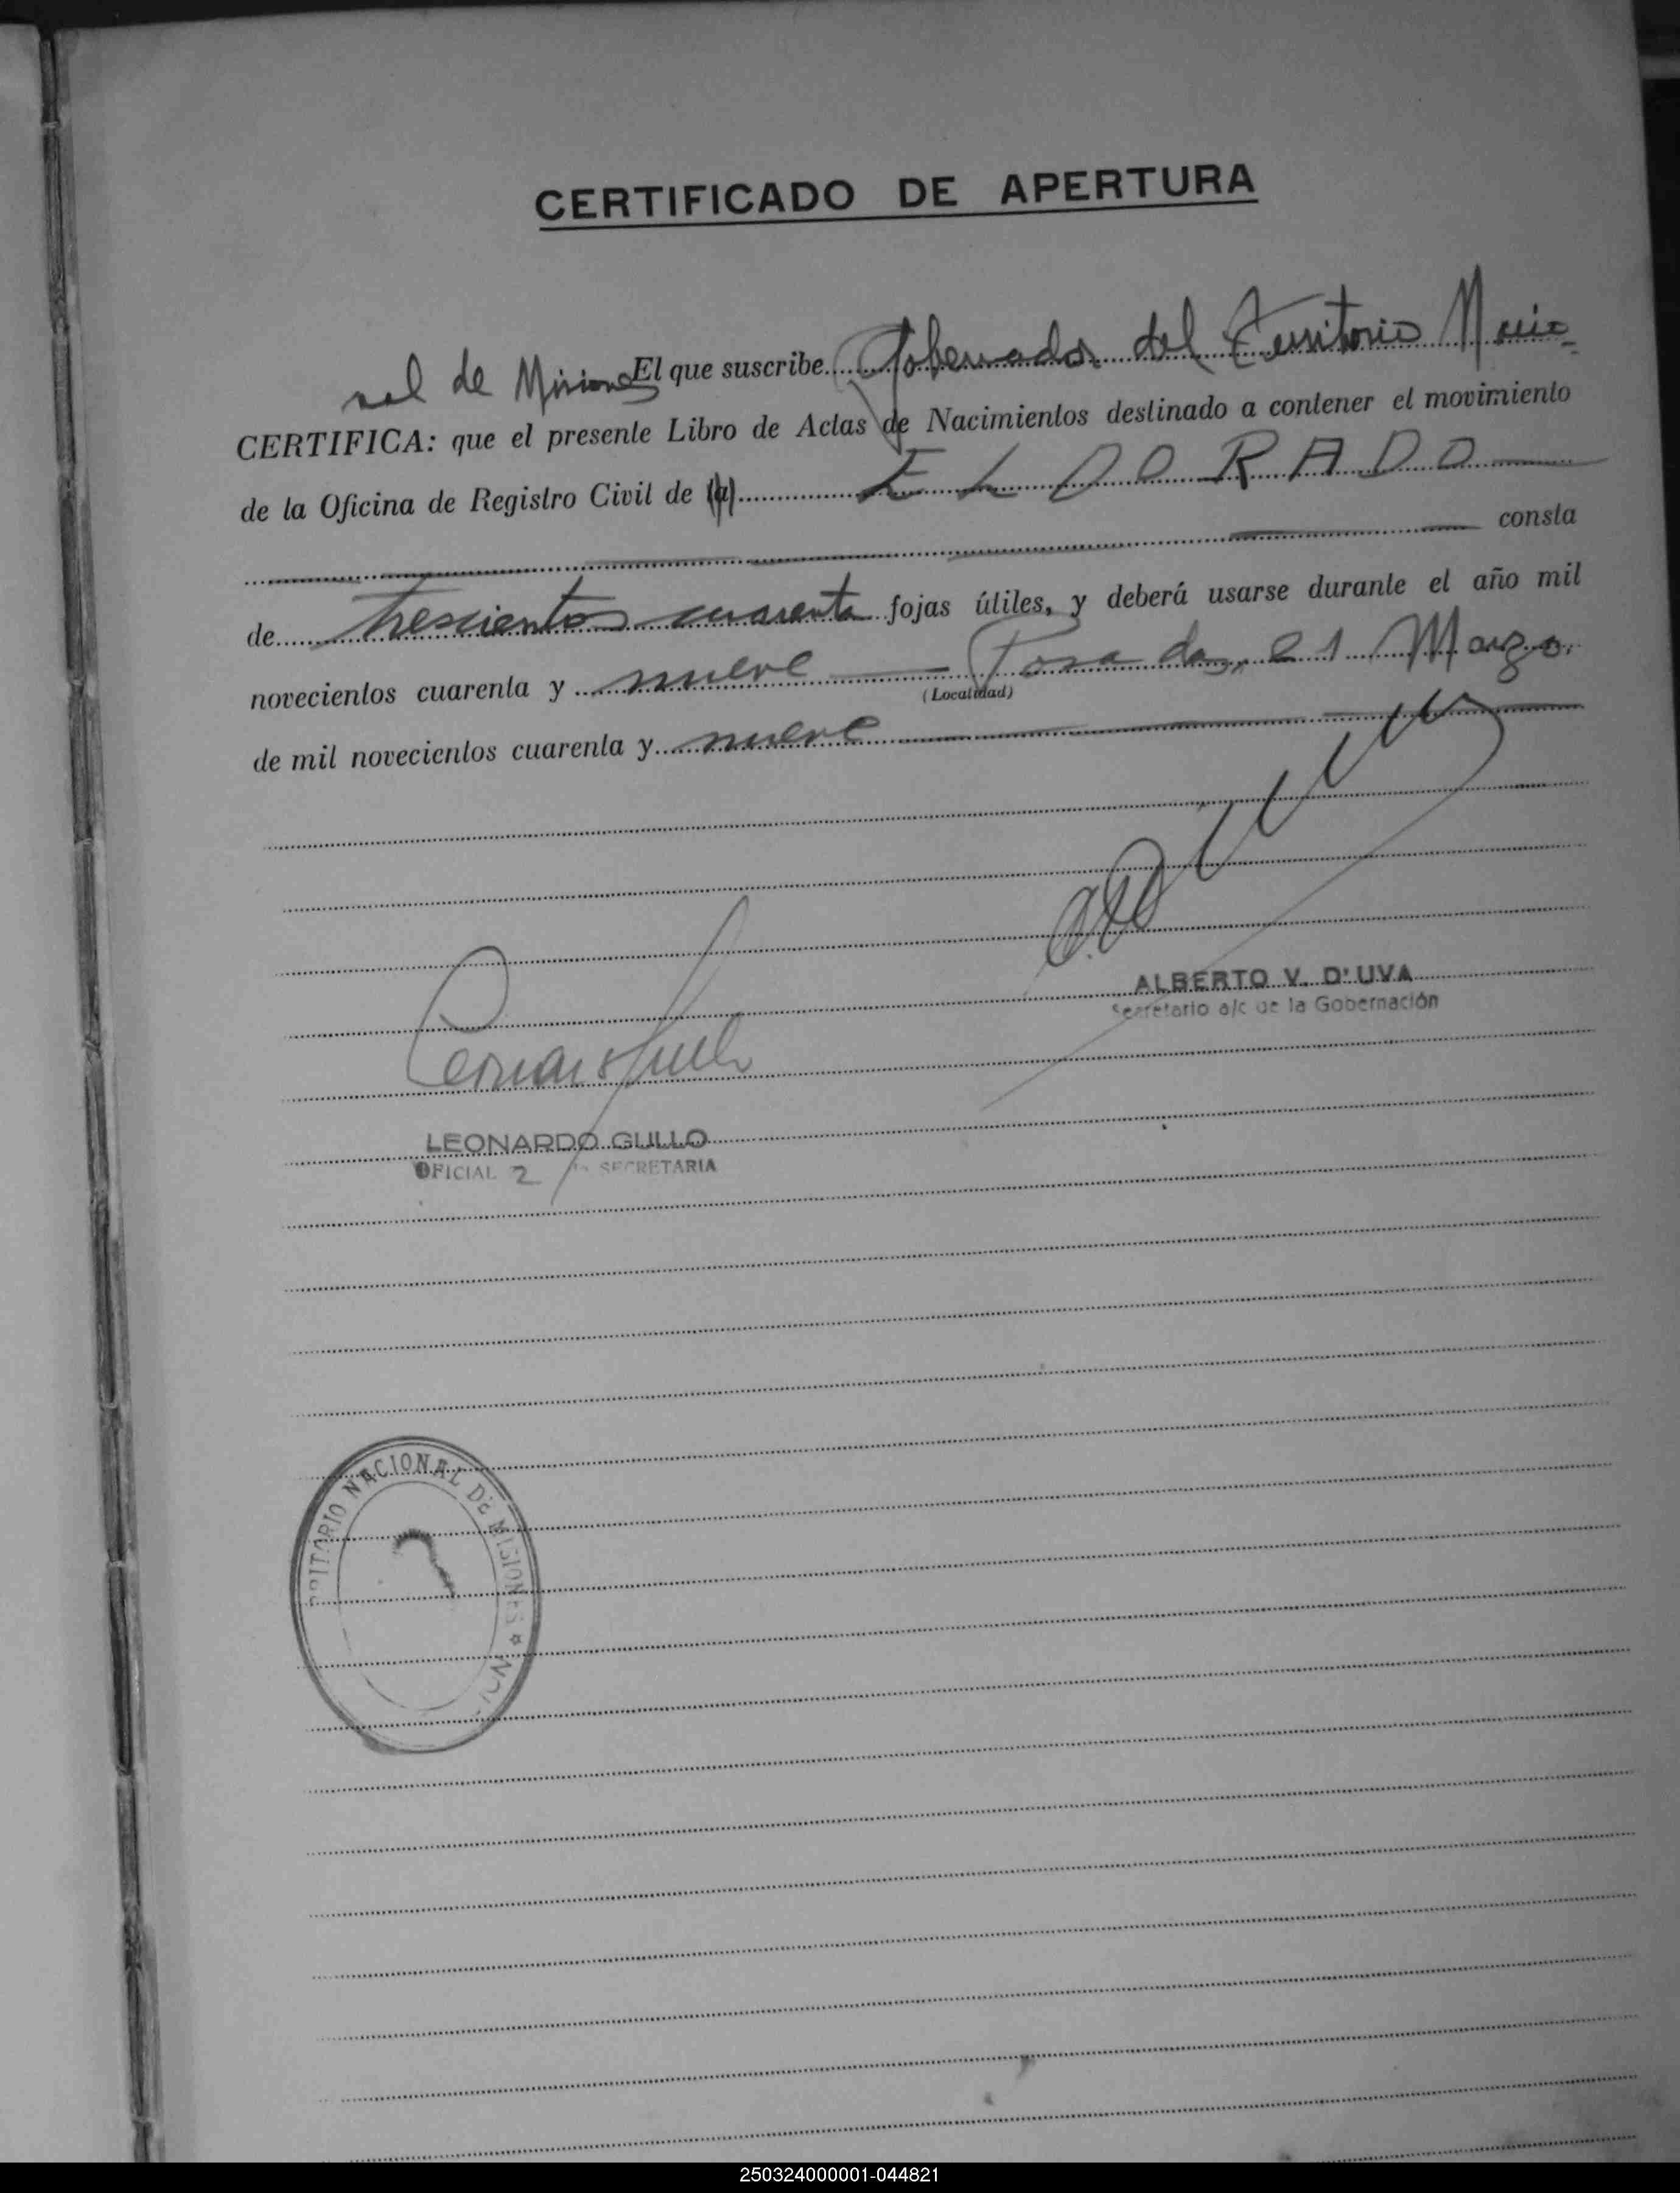 CERTIFICADO DE APERTURA
El que suscribe Gobernador del Territorio Nacio-
nal de Misiones
CERTIFICA: que el presente Libro de Actas de Nacimientos destinado a contener el movimiento
de la Oficina de Registro Civil de (a) ELDORADO
consta
de trescientos cuarenta fojas útiles, y deberá usarse durante el año mil
novecientos cuarenta y nueve Posadas, 21 Marzo
(Localidad)
de mil novecientos cuarenta y nueve
ALBERTO V. D'UVA
Secretario a/c de la Gobernación
LEONARDO GULLO
OFICIAL 2 SECRETARIA
RRITORIO NACIONAL DE MISIONES
250324000001-044821